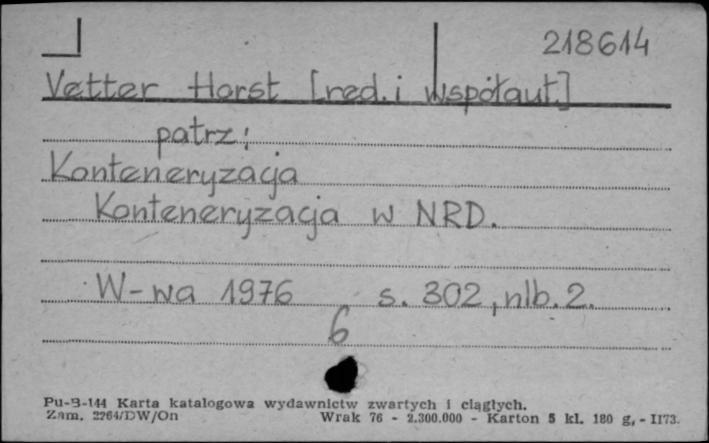 218614
Vetter Horst [red. i współaut.]
patrz:
Konteneryzacja
Konteneryzacja w NRD.
W-wa 1976 s. 302, nlb. 2.
6
Pu-B-144 Karta katalogowa wydawnictw zwartych i ciągłych.
Zam. 2264/DW/On Wrak 76 - 2.300.000 - Karton 5 kl. 180 g, - II73.